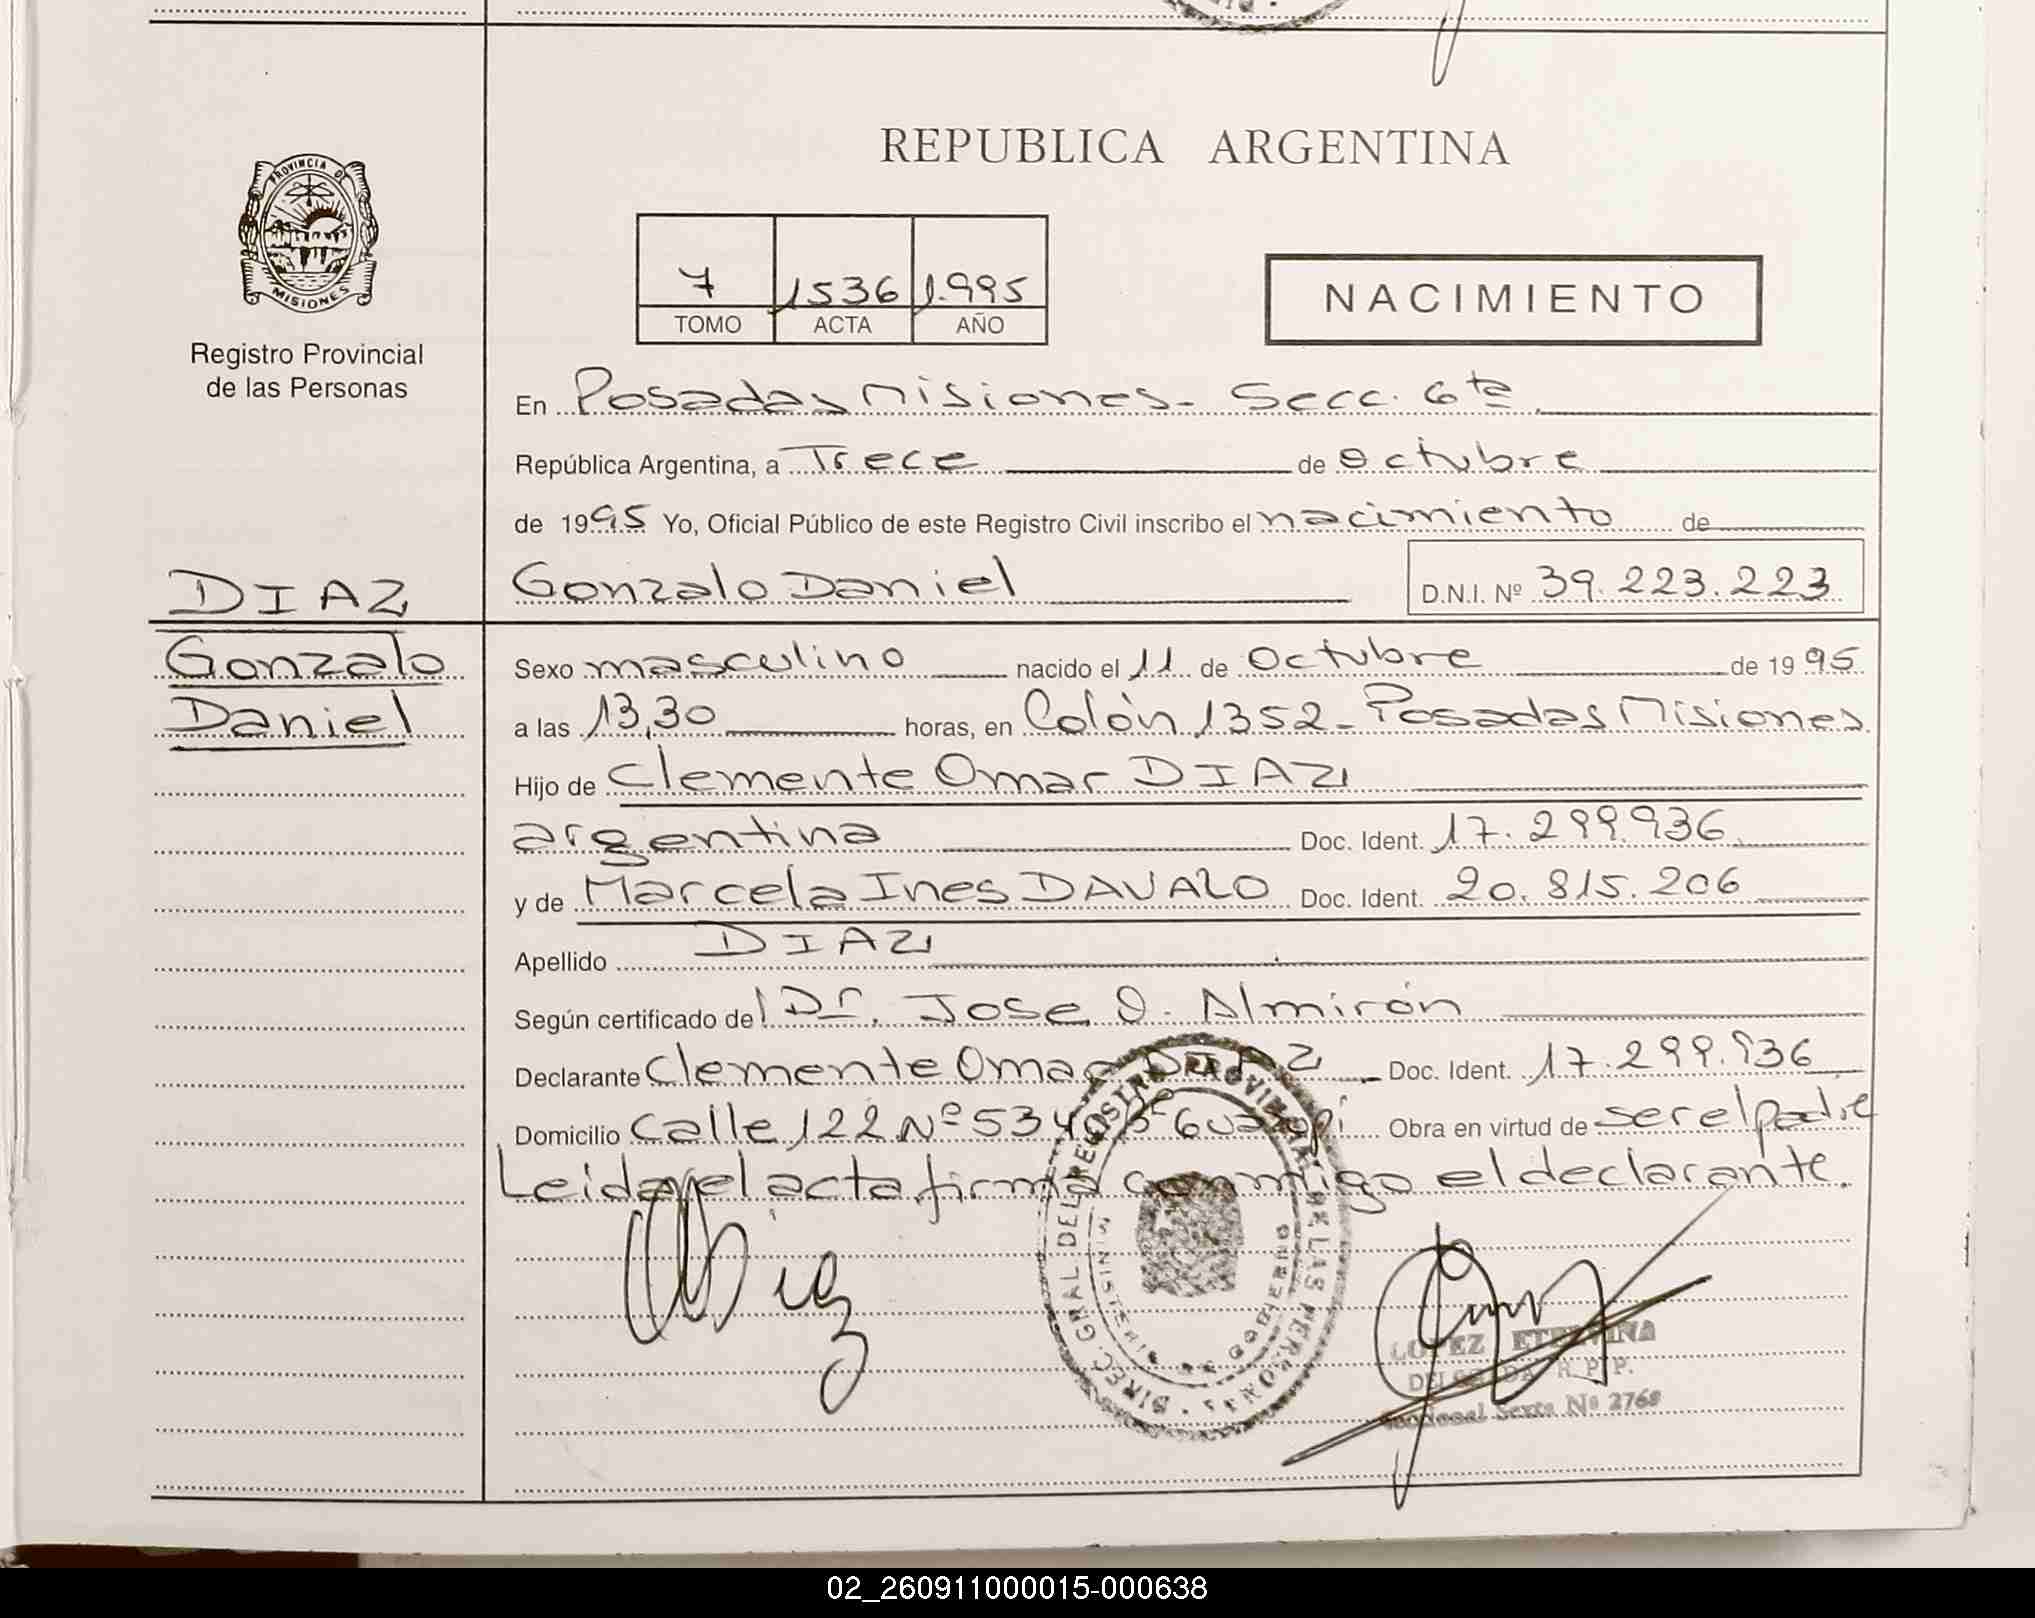 REPUBLICA ARGENTINA
PROVINCIA DE
MISIONES
Registro Provincial
de las Personas
7 1536 1.995
TOMO ACTA AÑO
NACIMIENTO
En Posadas Misiones- Secc. 6ta
República Argentina, a Trece de Octubre
de 1995 Yo, Oficial Público de este Registro Civil inscribo el nacimiento de
DIAZ
Gonzalo
Daniel
Gonzalo Daniel D.N.I. Nº 39.223.223
Sexo masculino nacido el 11 de Octubre de 1995
a las 13,30 horas, en Colón 1352- Posadas Misiones
Hijo de Clemente Omar DIAZ
argentina Doc. Ident. 17.299.936
y de Marcela Ines DAVALO Doc. Ident. 20.815.206
Apellido DIAZ
Según certificado del Dr. Jose O. Almirón
Declarante Clemente Omar DIAZ Doc. Ident. 17.299.936
Domicilio Calle 122 Nº 534 Obra en virtud de ser el padre
Leida el acta firma conmigo el declarante.
Diaz
DIREC. GRAL. DEL REGISTRO PROVINCIAL DE LAS PERSONAS
MINISTERIO DE GOBIERNO
LOPEZ ETELVINA
DELEGADA R. P. P.
Seccional Sexta Nº 2768
02_260911000015-000638